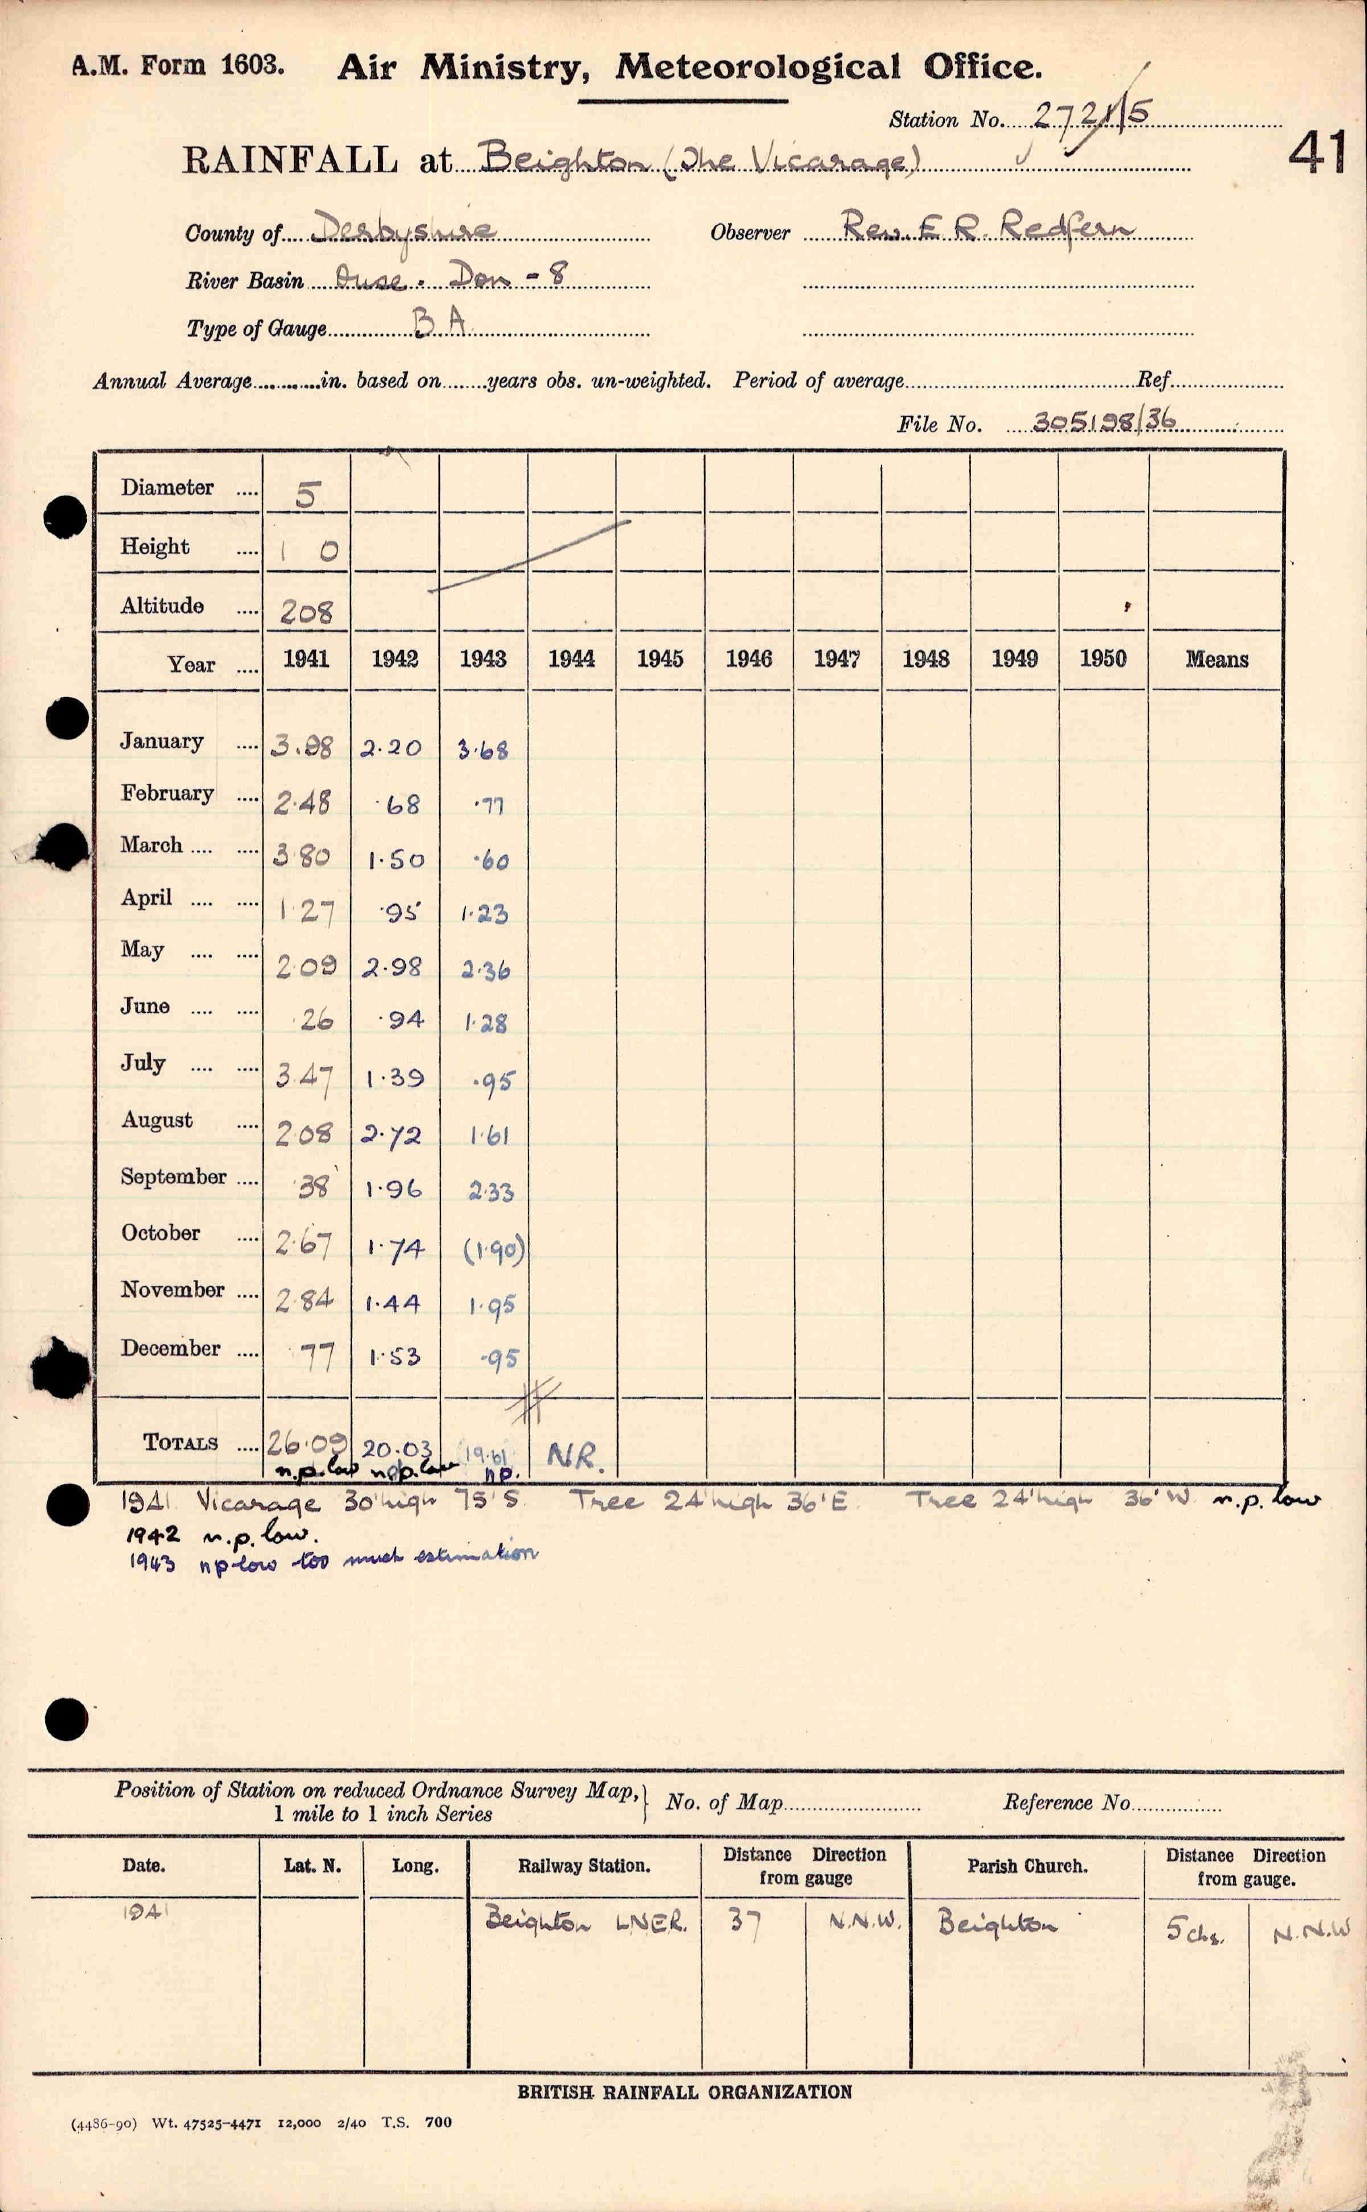 A.M. Form 1603. Air Ministry, Meteorological Office.
Station No. 2721/5
41
RAINFALL at Beighton (The Vicarage)
County of Derbyshire Observer Rev. E R. Redfern
River Basin Ouse. Don - 8
Type of Gauge B A
Annual Average in. based on years obs. un-weighted. Period of average Ref.
File No. 305198/36
Diameter 5
Height 1 0
Altitude 208
Year 1941 1942 1943 1944 1945 1946 1947 1948 1949 1950 Means
January 3.98 2.20 3.68
February 2.48 .68 .77
March 3.80 1.50 .60
April 1.27 .95 1.23
May 2.09 2.98 2.36
June .26 .94 1.28
July 3.47 1.39 .95
August 2.08 2.72 1.61
September .38 1.96 2.33
October 2.67 1.74 (1.90)
November 2.84 1.44 1.95
December .77 1.53 .95
TOTALS 26.09 20.03 (19.61) N.R.
n.p. low n.p. low n.p.
1941 Vicarage 30' high 75' S. Tree 24' high 36' E Tree 24' high 36' W. n.p. low
1942 n.p. low.
1943 n p low too much estimation
Position of Station on reduced Ordnance Survey Map, 1 mile to 1 inch Series } No. of Map Reference No.
Date. Lat. N. Long. Railway Station. Distance Direction from gauge Parish Church. Distance Direction from gauge.
1941 Beighton LNER. 37 N.N.W. Beighton 5 chs. N.N.W
BRITISH RAINFALL ORGANIZATION
(4486-90) Wt. 47525-4471 12,000 2/40 T.S. 700